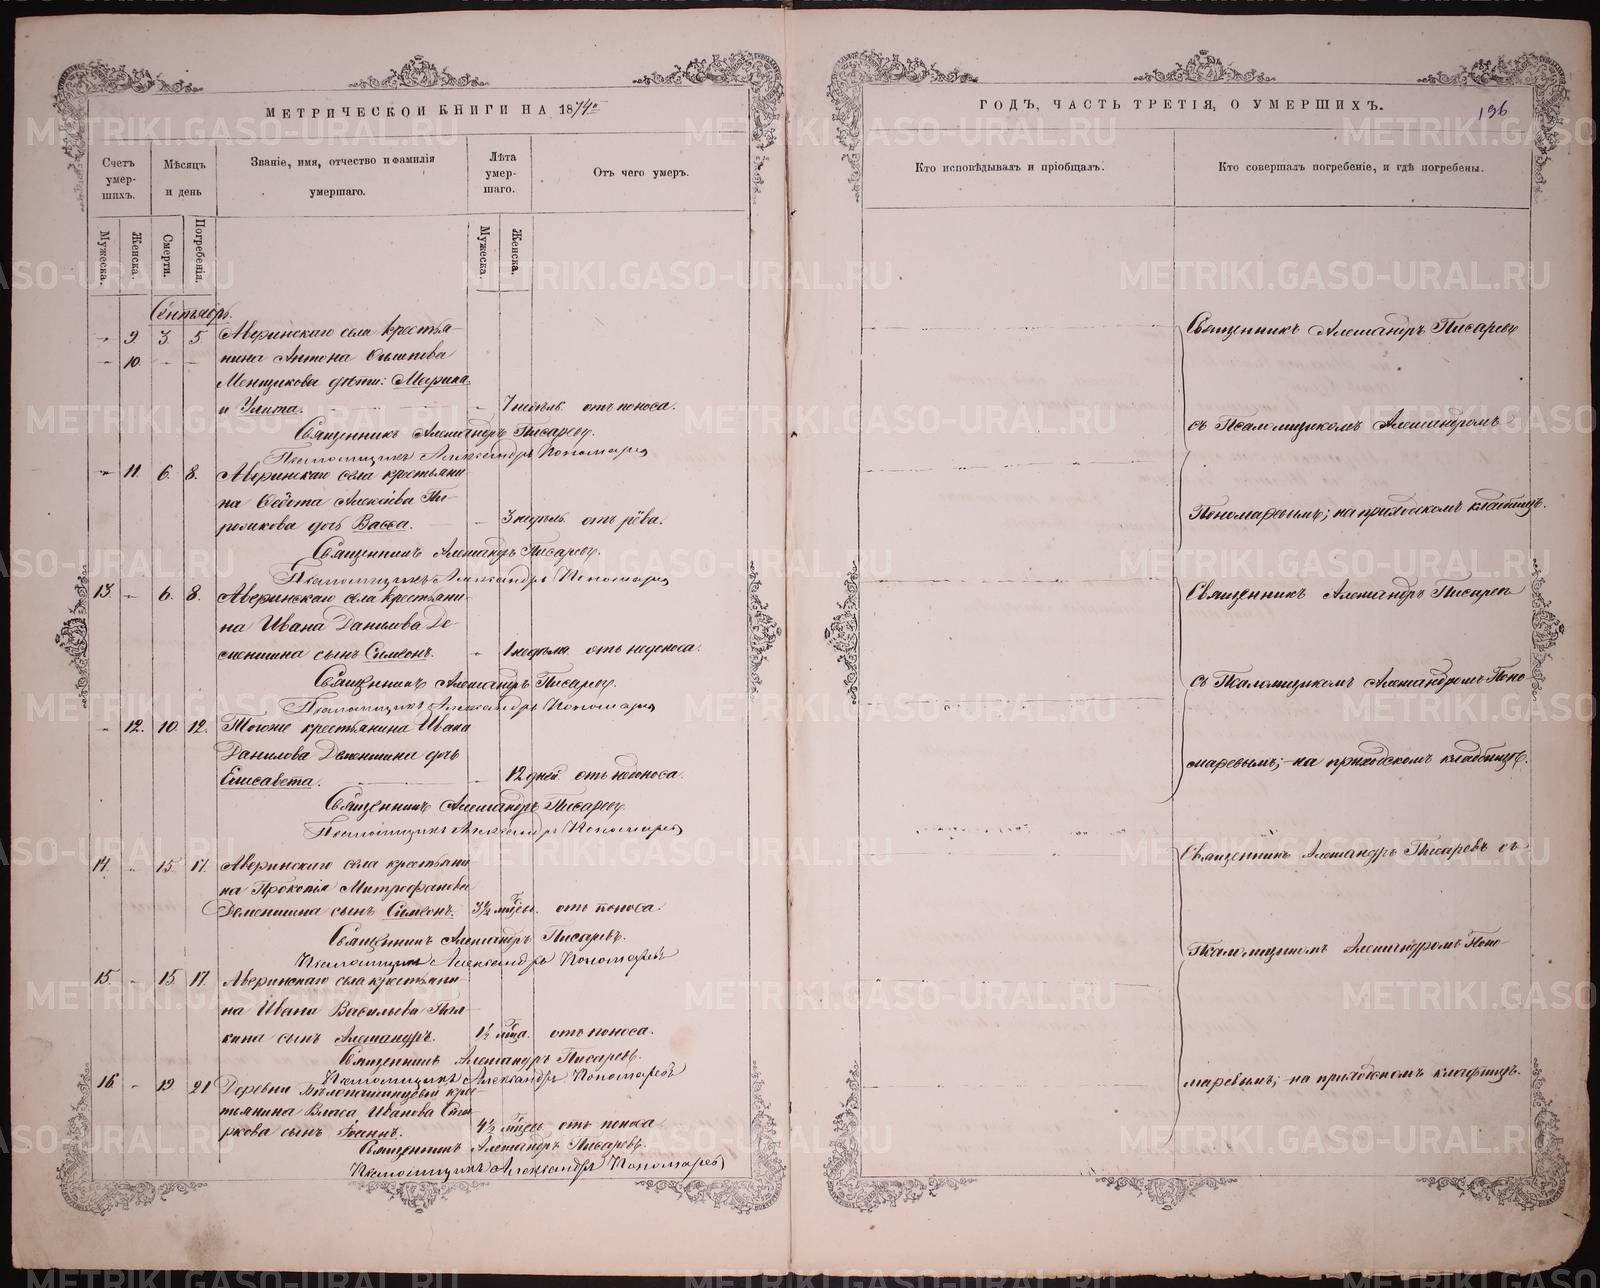 МЕТРИЧЕСКОЙ КНИГИ НА 1874й
Счетъ умер-шихъ.
Мѣсяцъ и день
Званіе, имя, отчество и фамилія умершаго.
Лѣта умер-шаго.
Отъ чего умеръ.
Мужеска.
Женска.
Смерти.
Погребенія.
Мужеска.
Женска.
Сентябрь.
9 3 5 Аверинскаго села крестья-
10 нина Антона
Менщикова дѣти: Марина
и Улита. 7 недѣль. отъ поноса.
Священникъ Александръ Писаревъ.
Псаломщикъ Александръ Пономаревъ
11. 6. 8. Аверинскаго села крестьяни-
на Ѳедота Алексѣева
дочь Васса. 3 недѣль. отъ рёва.
Священникъ Александръ Писаревъ.
Псаломщикъ Александръ Пономаревъ
13. 6. 8. Аверинскаго села крестьяни-
на Ивана Данилова Де-
меншина сынъ Симеонъ. 1 недѣля. отъ недоноса.
Священникъ Александръ Писаревъ.
Псаломщикъ Александръ Пономаревъ
12. 10. 12. Тогоже крестьянина Ивана
Данилова Деменшина дочь
Елисавета. 12 дней. отъ недоноса.
Священникъ Александръ Писаревъ
Псаломщикъ Александръ Пономаревъ
14. 15. 17. Аверинскаго села крестьяни-
на Прокопія Митрофанова
Деменшина сынъ Симеонъ. 3½ мѣсяц. отъ поноса.
Священникъ Александръ Писаревъ.
Псаломщикъ Александръ Пономаревъ
15. 15 17. Аверинскаго села крестьяни-
на Ивана Васильева
кина сынъ Александръ. 1½ мѣсца. отъ поноса.
Священникъ Александръ Писаревъ.
Псаломщикъ Александръ Пономаревъ
16 19 21 Деревни кре-
стьянина Власа Иванова
ркова сынъ Іоаннъ. 4½ мѣсяц отъ поноса
Священникъ Александръ Писаревъ.
Псаломщикъ Александръ Пономаревъ
ГОДЪ, ЧАСТЬ ТРЕТІЯ, О УМЕРШИХЪ.
196
Кто исповѣдывалъ и пріобщалъ.
Кто совершалъ погребеніе, и гдѣ погребены.
Священникъ Александръ Писаревъ
съ Псаломщикомъ Александромъ
Пономаревымъ; на приходскомъ кладбищѣ.
Священникъ Александръ Писаревъ
съ Псаломщикомъ Александромъ Поно-
маревымъ; на приходскомъ кладбищѣ.
Священникъ Александръ Писаревъ съ
Псаломщикомъ Александромъ Поно-
маревымъ; на приходскомъ кладбищѣ.
METRIKI.GASO-URAL.RU